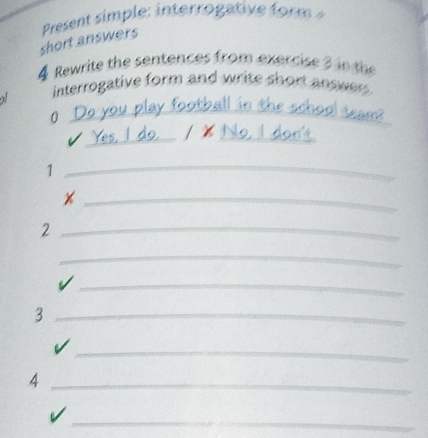 Present simple: interrogative form +
short answers
4 Rewrite the sentences from exercise 3 in the
interrogative form and write short answers.
0 Do you play football in the school team?
✓ Yes, I do. / ✗ No, I don't.
1
✗
2
✓
3
✓
4
✓